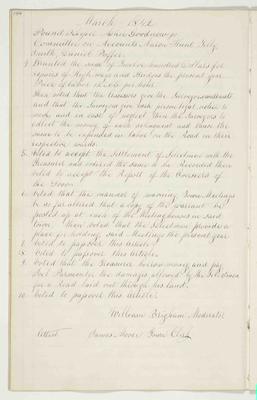 March 1842
Pound Keeper Asher Goodenow
Committee on Accounts Aaron Hunt
Smith, Daniel Puffer
Granted the sum of Twelve hundred Dollars for
repairs of Highways and Bridges the present year
Price of labor cts per hour
Then voted that the Assessors give the Surveyors
and that the Surveyors give each person legal notice to
work and in case of neglect then the Surveyors to
collect the money of each delinquent and cause the
same to be expended in labor on the Road in their
respective wards.
5. Voted to accept the Settlement of Selectmen with the
Treasurer and ordered the same to be Recorded then
voted to accept the Report of the Overseers of
the Poor
6. Voted that the manner of warning Town Meetings
be so far altered that a copy of the warrant be
posted up at each of the Meetinghouses in said
town. Then voted that the Selectmen provide a
place for holding said Meetings the present year
7. Voted to pass over this Article
8. Voted to pass over this Article
9. Voted that the Treasurer borrow money and pay
Joel Parmenter the damages allowed by the Selectmen
for a Road laid out through his land.
10. Voted to pass over this article
William Brigham Moderator
Attest James Moore Town Clerk